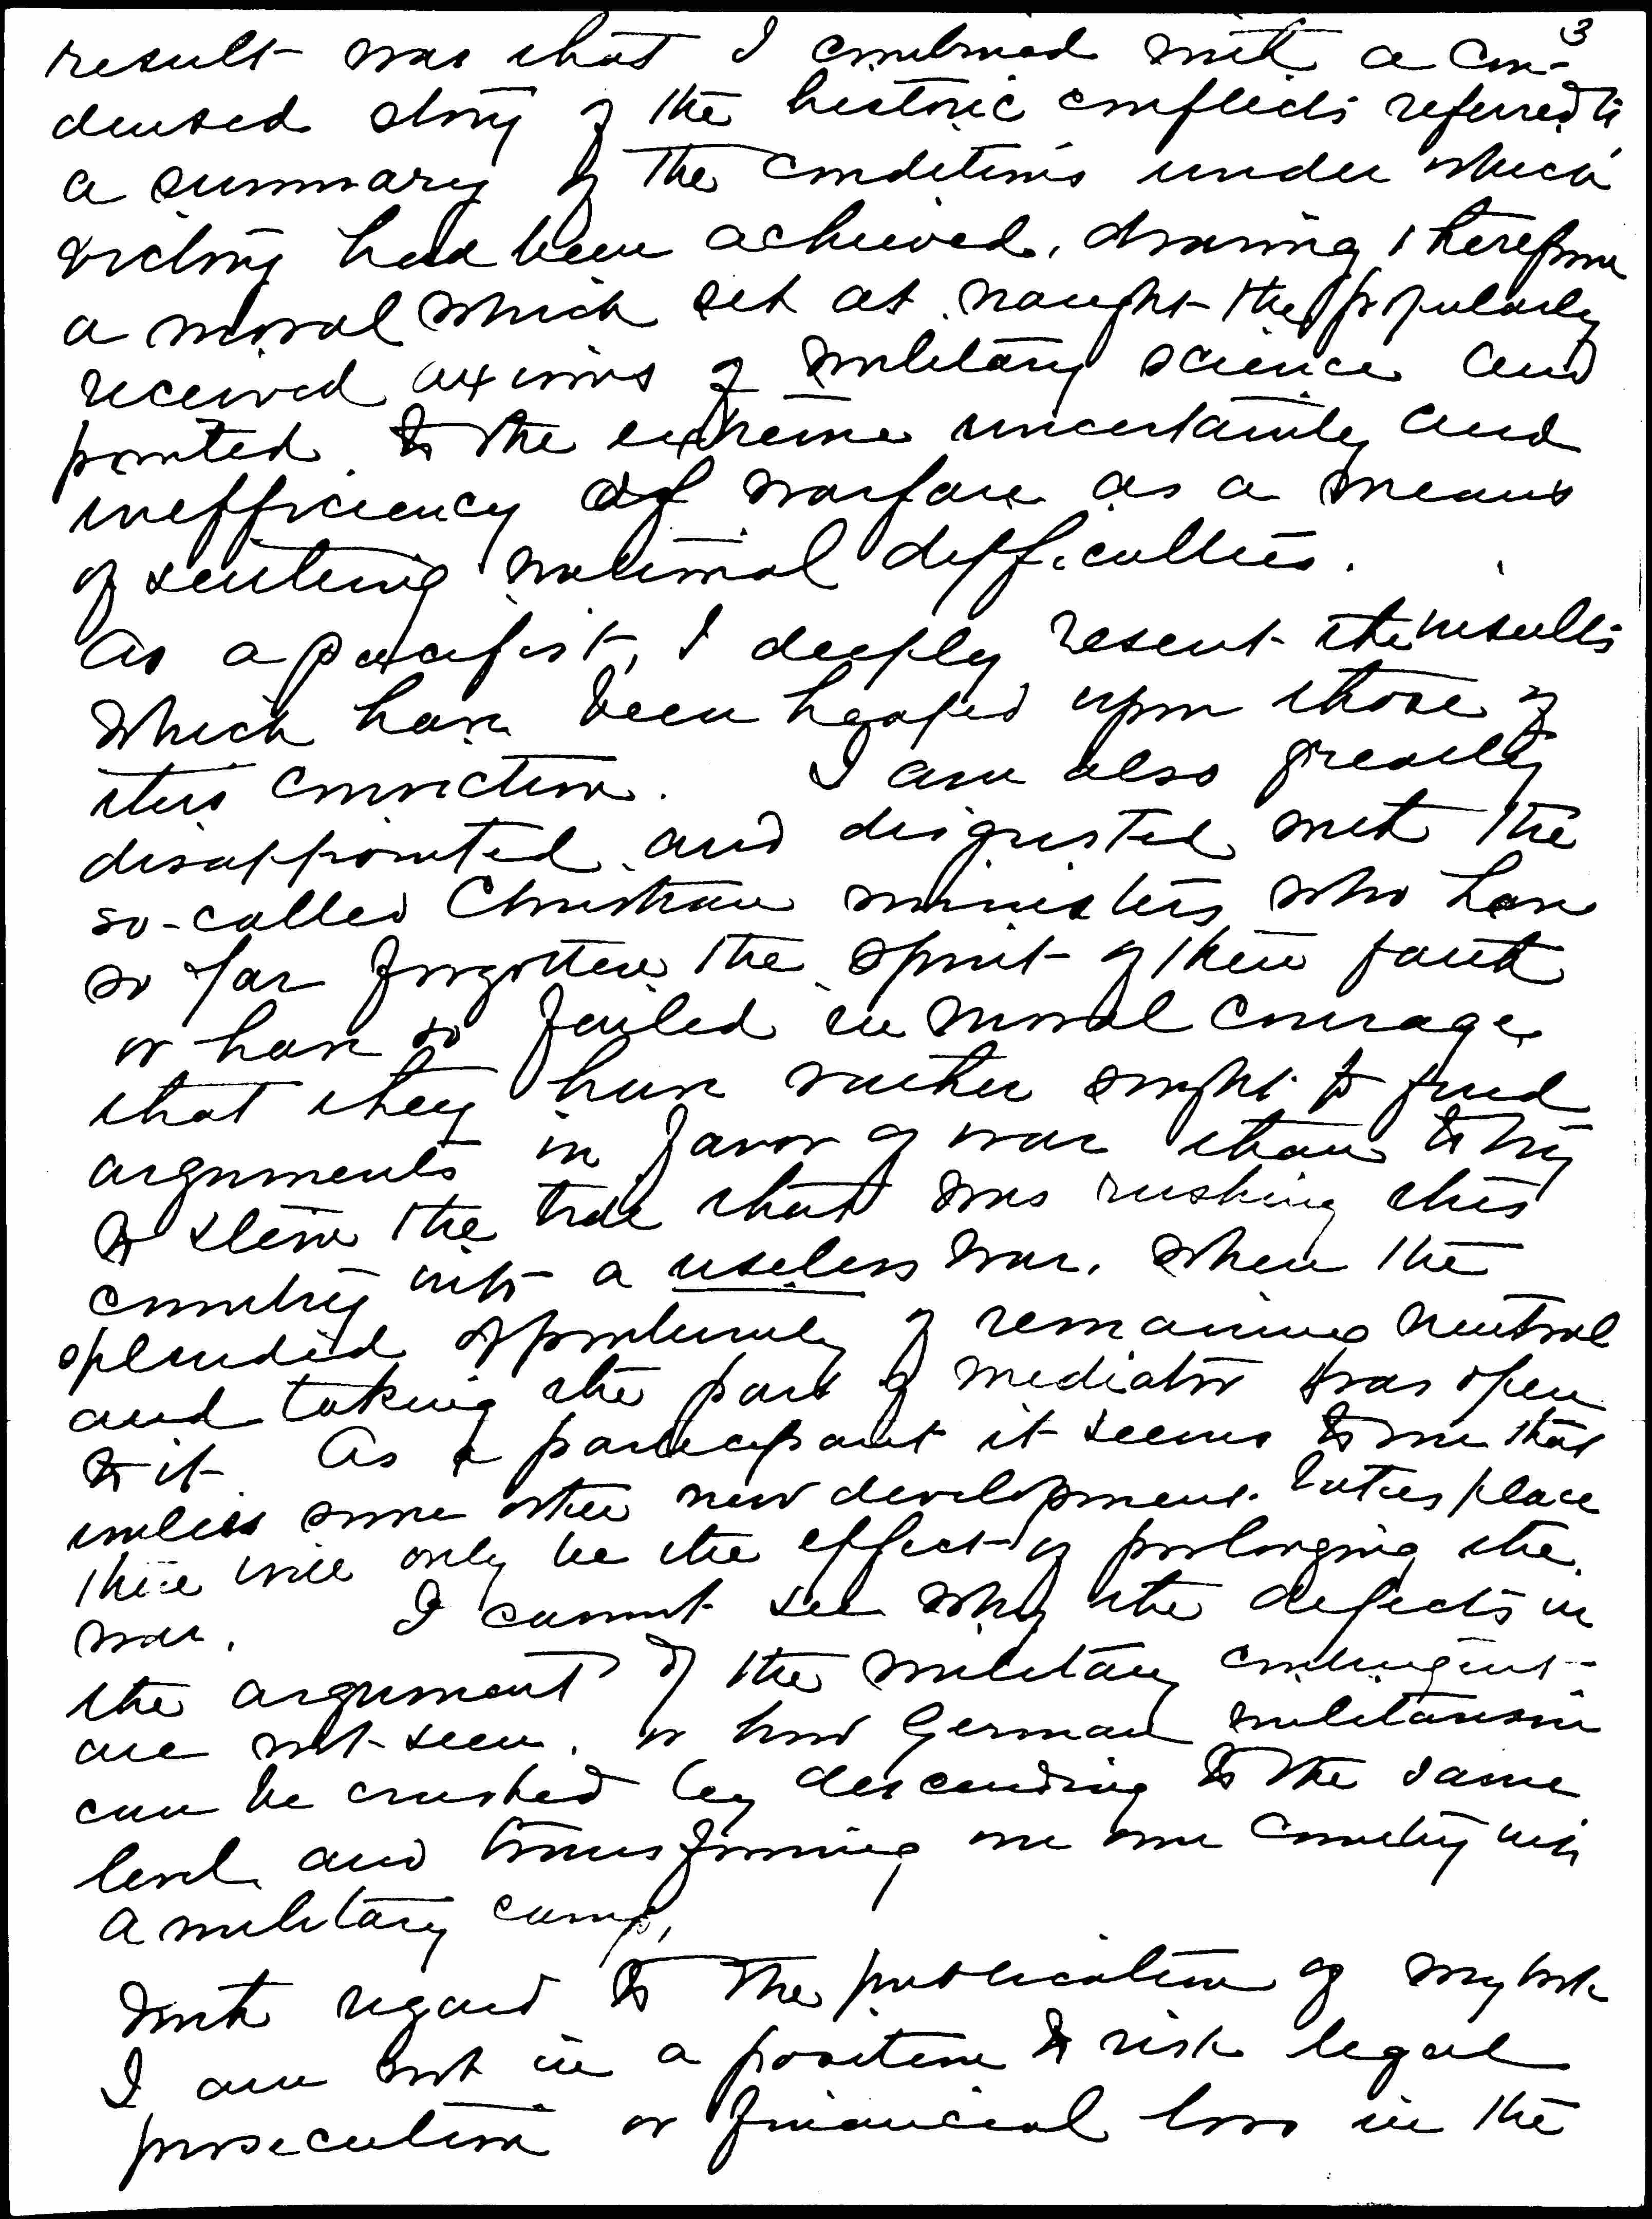 3
result was that I combined with a con-
densed story of the historic conflicts referred to
a summary of the conditions under which
victory had been achieved, drawing therefrom
a moral which set at naught the popularly
received axioms of military science and
pointed to the extreme uncertainty and
inefficiency of warfare as a means
of settling national difficulties.
As a pacifist, I deeply resent the insults
which have been heaped upon those of
this conviction. I am also greatly
disappointed and disgusted with the
so-called Christian ministers who have
so far forgotten the spirit of their faith
or have so failed in moral courage
that they have rather sought to find
arguments in favor of war than to try
to stem the tide that was rushing this
country into a useless war, when the
splendid opportunity of remaining neutral
and taking the part of mediator was open
to it. As a participant it seems to me that
unless some other new development takes place
there will only be the effect of prolonging the
war. I cannot see why the defects in
the argument of the military contingent
are not seen, or how German militarism
can be crushed by descending to the same
level and transforming our own country into
a military camp.
With regard to the publication of my book
I am not in a position to risk legal
prosecution or financial loss in the